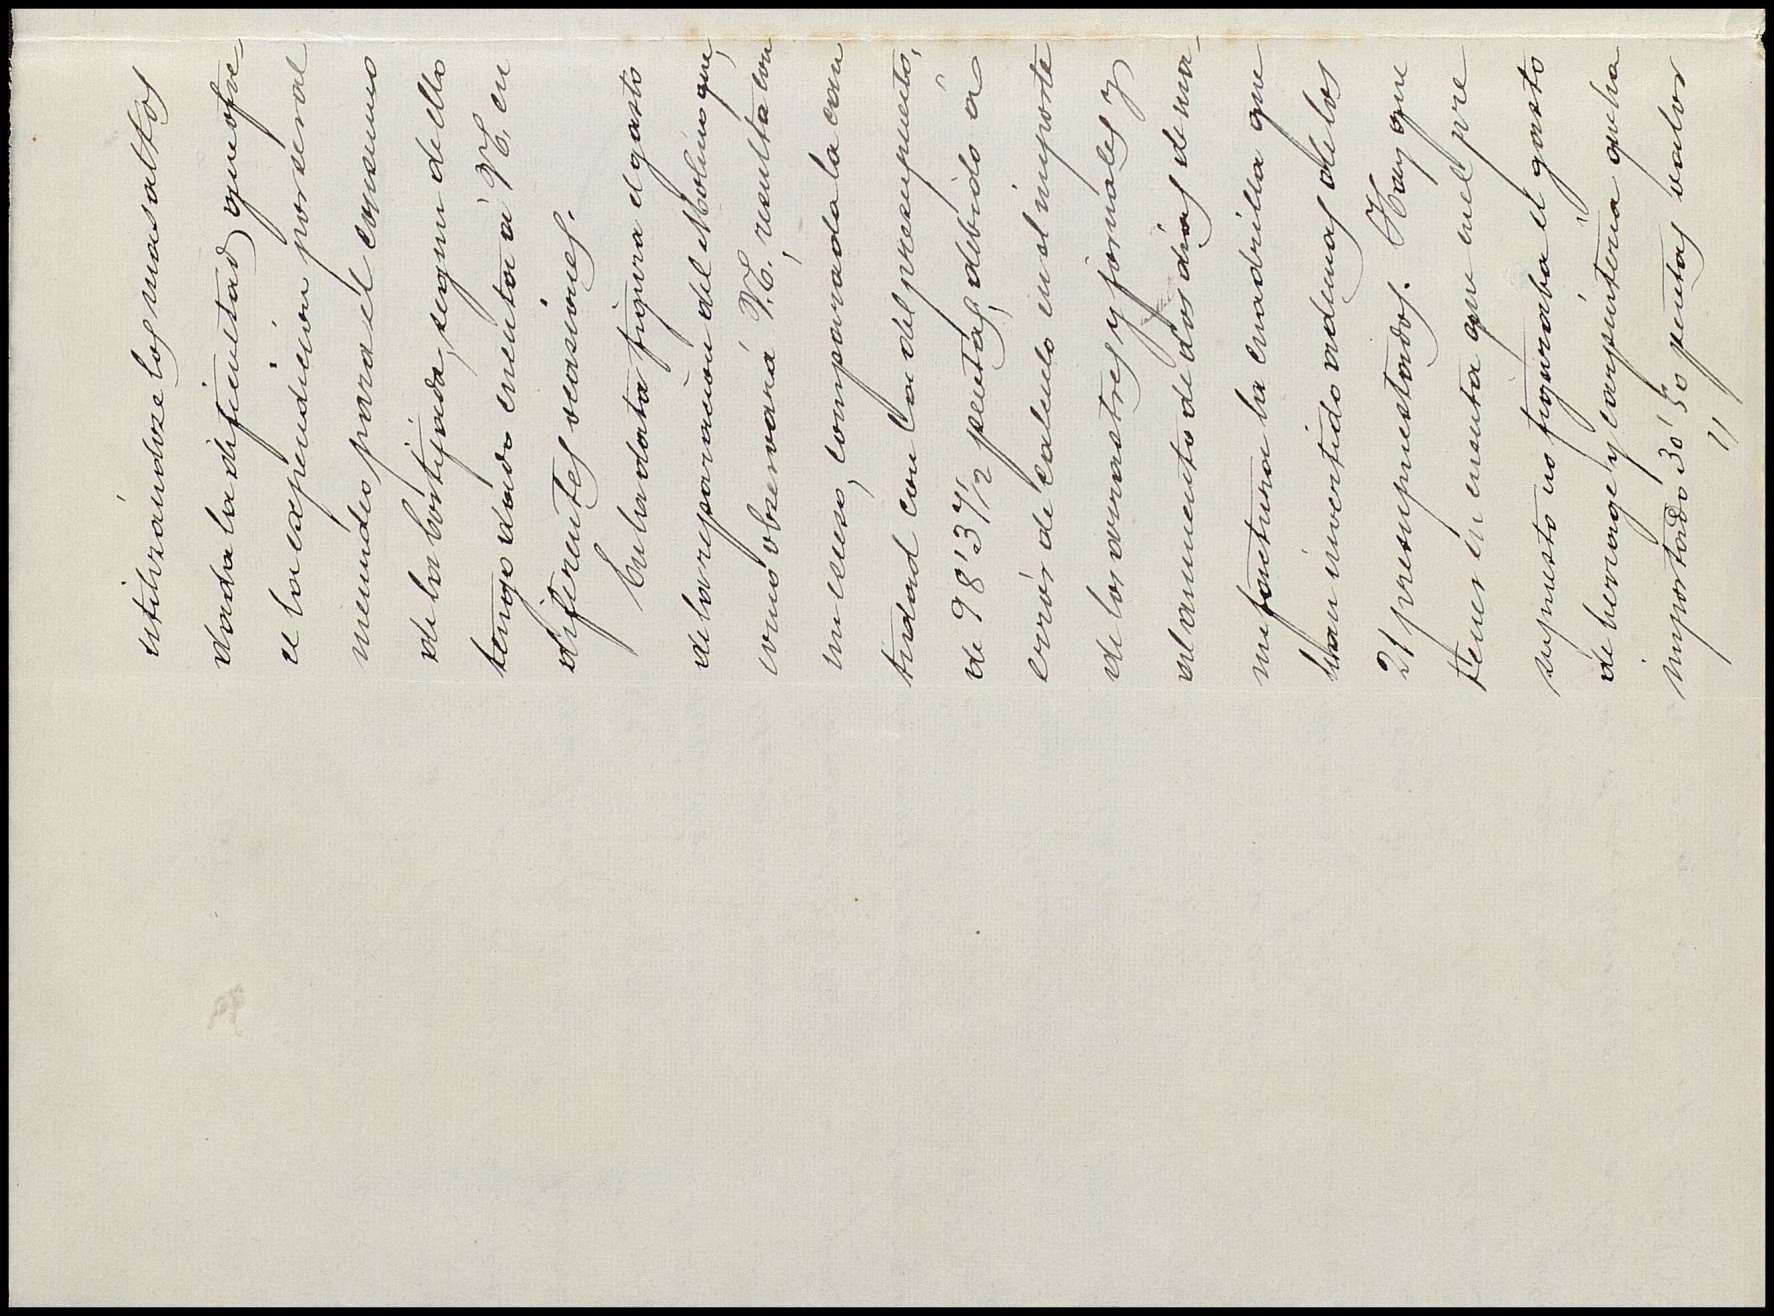 utilizándoze los mas altos
dada la dificultad que ofre
ce la expendición por ser al
menúdeo para el consumo
de la bortijada, segun de ello
tengo dado cuenta á V.E. en
diferentes ocasiones.
En la data figura el gasto
de la reparacion del Molino que,
como observará V.E., resulta con
un eceso, comparada la can
tidad con la del presupuesto,
de 98'37 1/2 pesetas, debido á
errór de calculo en el importe
de los arrastres y jornales y
al aumento de dos dias de ma-
nufactura la cuadrilla que
han invertido ademas de los
21 presupuestados. Hay que
tener en cuenta que en el pre
supuesto no figuraba el gasto
de herrage y carpinteria que ha
importado 30'50 pesetas valor